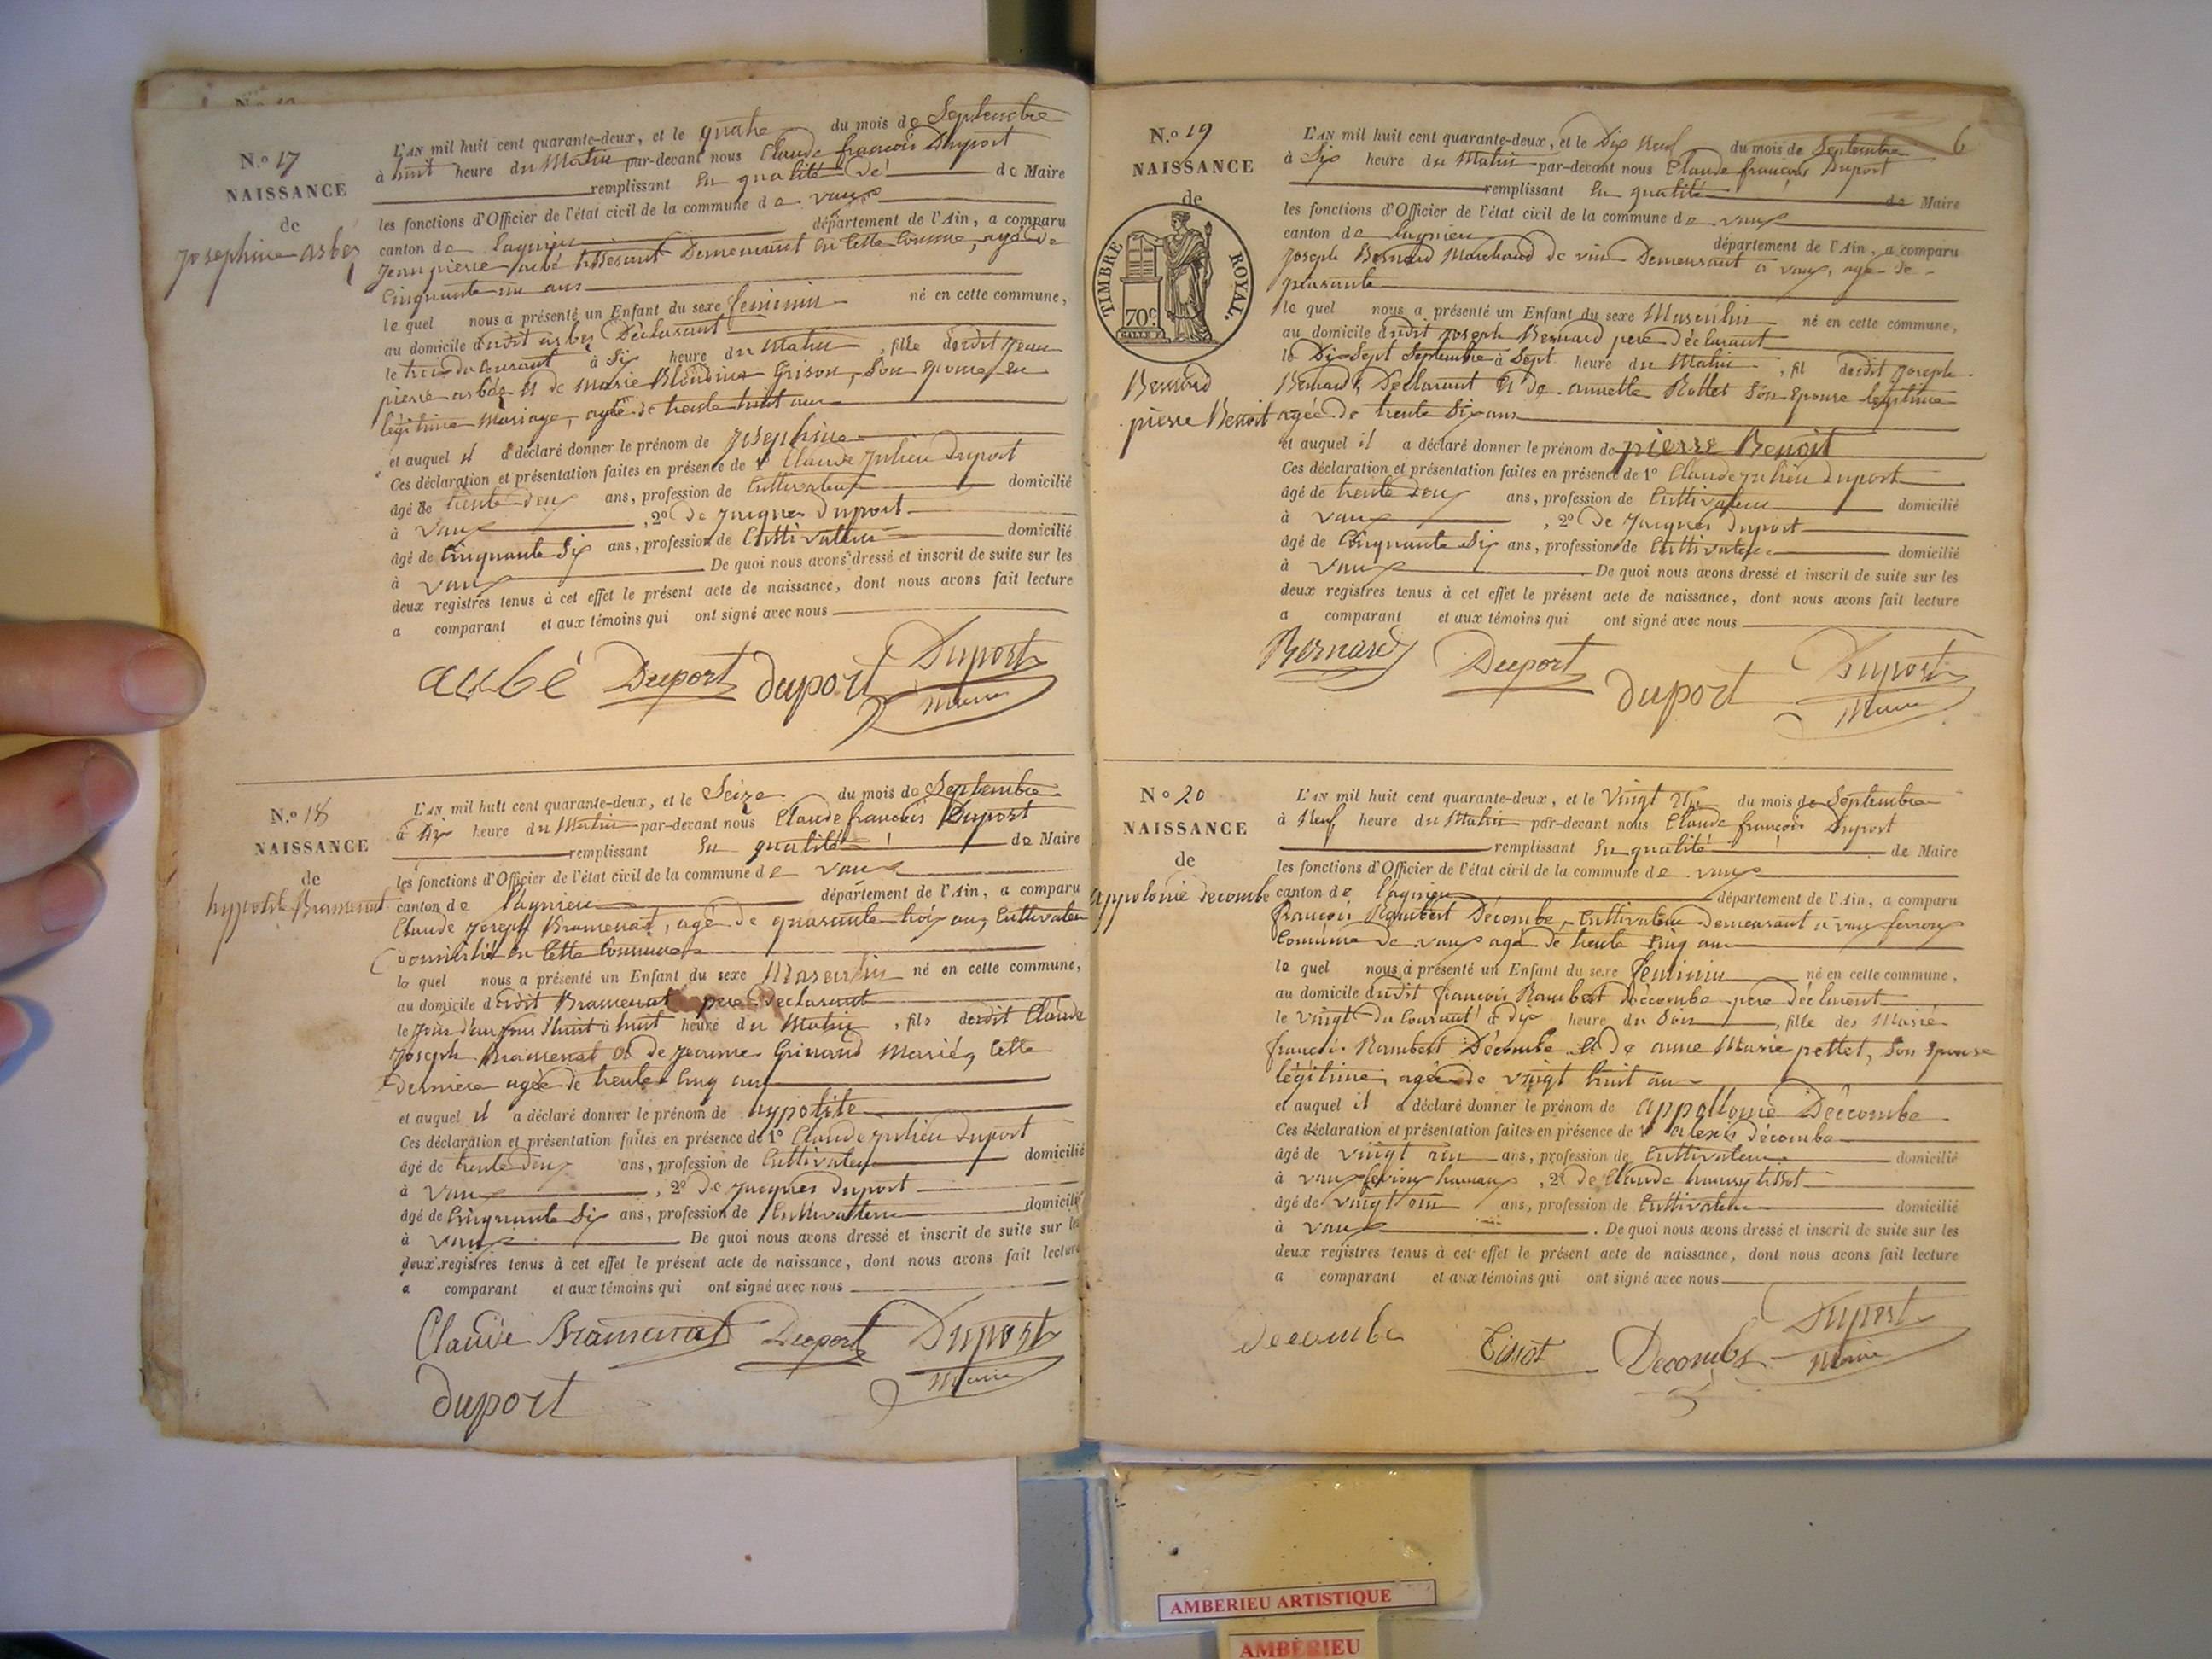 N.º 17
NAISSANCE
de
Josephine
L'AN mil huit cent quarante-deux, et le quatre du mois de Septembre
à huit heure du Matin par-devant nous Claude françois Duport
remplissant En qualité de de Maire
les fonctions d'Officier de l'état civil de la commune de vaux
canton de lagnieu département de l'Ain, a comparu
Jean pierre Demeurant en Cette Commune, agé de
Cinquante un ans
le quel nous a présenté un Enfant du sexe feminin né en cette commune,
au domicile dudit Déclarant
le trois du Courant à Six heure du Matin, fille dudit Jean
pierre et de Marie Blondine Grison, Son Epouse en
légitime Mariage, agée de trente huit ans
et auquel il a déclaré donner le prénom de Josephine
Ces déclaration et présentation faites en présence de 1º Claude Julien Duport
âgé de trente deux ans, profession de Cultivateur domicilié
à vaux, 2º de Jacques Duport
âgé de Cinquante Six ans, profession de Cultivateur domicilié
à vaux De quoi nous avons dressé et inscrit de suite sur les
deux registres tenus à cet effet le présent acte de naissance, dont nous avons fait lecture
a comparant et aux témoins qui ont signé avec nous
aubé Duport duport Duport
Maire
N.º 18
NAISSANCE
de
hypolite Bramerat
L'AN mil huit cent quarante-deux, et le Seize du mois de Septembre
à Dix heure du Matin par-devant nous Claude françois Duport
remplissant En qualité de Maire
les fonctions d'Officier de l'état civil de la commune de vaux
canton de lagnieu département de l'Ain, a comparu
Claude Joseph Bramerat, agé de quarante trois ans, Cultivateur
Domicilié en Cette Commune
le quel nous a présenté un Enfant du sexe Masculin né en cette commune,
au domicile dudit Bramerat pere Declarant
le à huit heure du Matin, fils dudit Claude
Joseph Bramerat et de Jeanne Grinand Mariés, Cette
Derniere agée de trente Cinq ans
et auquel il a déclaré donner le prénom de hypolite
Ces déclaration et présentation faites en présence de 1º Claude Julien Duport
âgé de trente deux ans, profession de Cultivateur domicilié
à vaux, 2º de Jacques Duport
âgé de Cinquante Six ans, profession de Cultivateur domicilié
à vaux De quoi nous avons dressé et inscrit de suite sur les
deux registres tenus à cet effet le présent acte de naissance, dont nous avons fait lecture
a comparant et aux témoins qui ont signé avec nous
Claude Bramerat Duport Duport
Maire
duport
6
N.º 19
NAISSANCE
de
TIMBRE ROYAL.
70 c
Bernard
pierre Benoit
L'AN mil huit cent quarante-deux, et le Dix Neuf du mois de Septembre
à Six heure du Matin par-devant nous Claude françois Duport
remplissant En qualité de Maire
les fonctions d'Officier de l'état civil de la commune de vaux
canton de lagnieu département de l'Ain, a comparu
Joseph Bernard Marchand de vin Demeurant à vaux, agé de
quarante
le quel nous a présenté un Enfant du sexe Masculin né en cette commune,
au domicile dudit Joseph Bernard pere Déclarant
le Dix Sept Septembre à Sept heure du Matin, fil dudit Joseph
Bernard, Déclarant et de annette Rollet Son Epouse legitime
agée de trente Six ans
et auquel il a déclaré donner le prénom de pierre Benoit
Ces déclaration et présentation faites en présence de 1º Claude Julien Duport
âgé de trente deux ans, profession de Cultivateur domicilié
à vaux, 2º de Jacques Duport
âgé de Cinquante Six ans, profession de Cultivateur domicilié
à vaux De quoi nous avons dressé et inscrit de suite sur les
deux registres tenus à cet effet le présent acte de naissance, dont nous avons fait lecture
a comparant et aux témoins qui ont signé avec nous
Bernard Duport duport Duport
Maire
Nº 20
NAISSANCE
de
appolonie Decombe
L'AN mil huit cent quarante-deux, et le Vingt Un du mois de Septembre
à Neuf heure du Matin par-devant nous Claude françois Duport
remplissant En qualité de Maire
les fonctions d'Officier de l'état civil de la commune de vaux
canton de lagnieu département de l'Ain, a comparu
françois Rambert Décombe, Cultivateur demeurant à vaux
Commune de vaux agé de trente Cinq ans
le quel nous a présenté un Enfant du sexe feminin né en cette commune,
au domicile dudit françois Rambert Décombe pere déclarent
le vingt du Courant à dix heure du Soir, fille des Mariés
françois Rambert Décombe et de anne Marie pellet, Son Epouse
légitime, agée de vingt huit ans
et auquel il a déclaré donner le prénom de appollonie Décombe
Ces déclaration et présentation faites en présence de 1º alexis décombe
âgé de vingt ans, profession de Cultivateur domicilié
à vaux, 2º de Claude tissot
âgé de vingt ans, profession de Cultivateur domicilié
à vaux. De quoi nous avons dressé et inscrit de suite sur les
deux registres tenus à cet effet le présent acte de naissance, dont nous avons fait lecture
a comparant et aux témoins qui ont signé avec nous
decombe Tissot Decombe Duport
Maire
AMBERIEU ARTISTIQUE
AMBERIEU